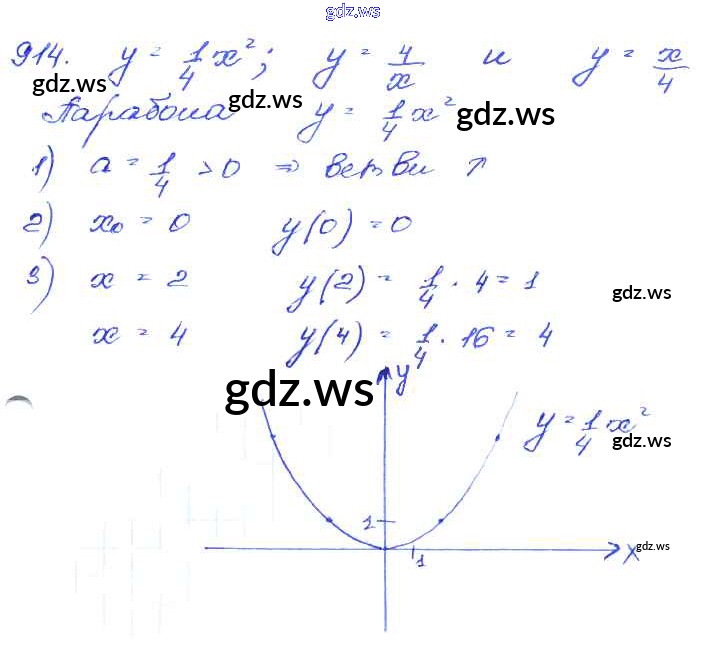 gdz.ws
914. y = 1/4 x²; y = 4/x и y = x/4
gdz.ws gdz.ws gdz.ws
Парабола y = 1/4 x²
1) a = 1/4 > 0 ⇒ ветви ↑
2) x₀ = 0 y(0) = 0
3) x = 2 y(2) = 1/4 · 4 = 1
gdz.ws
x = 4 y(4) = 1/4 · 16 = 4
y
gdz.ws
y = 1/4 x²
gdz.ws
1
1
x
gdz.ws